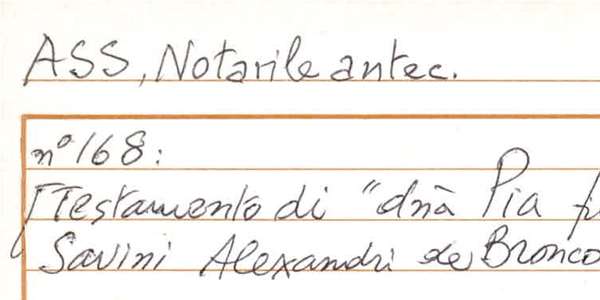 ASS, Notarile antec.
n° 168:
[Testamento di "dnā Pia
Savini Alexandri de Bronco